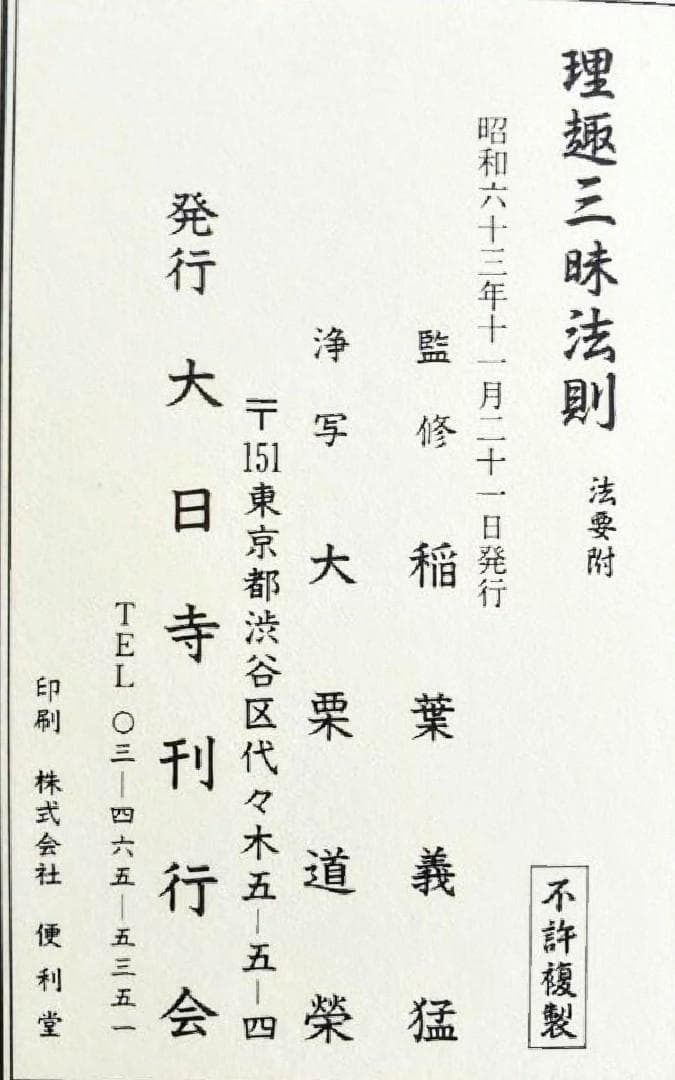 理趣三昧法則 法要附
不許複製
昭和六十三年十一月二十一日発行
監修 稲葉義猛
浄写 大栗道榮
〒151東京都渋谷区代々木五―五―四
発行 大日寺刊行会
TEL 〇三―四六五―五三五一
印刷 株式会社 便利堂